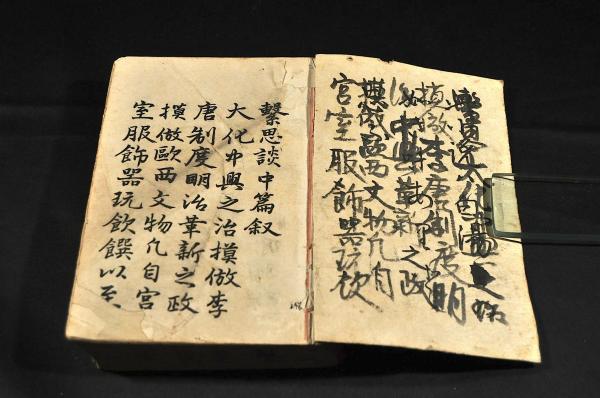 大化
摸倣李唐制度明
中興革新之政
摸倣歐西文物凡自
宮室服飾器玩飲
繫思談中篇叙
大化中興之治摸倣李
唐制度明治革新之政
摸倣歐西文物凡自宮
室服飾器玩飲饌以至